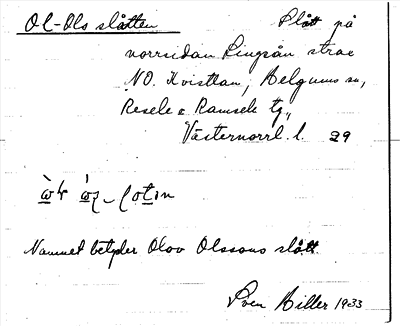 Ol-Ols slåtten   Slått på
norrsidan Lingån strax
NO. Kvisttan, Helgums sn,
Resele o Ramsele tg,,
Västernorrl. l. 29
Namnet betyder Olov Olssons slått
Sven Hiller 1933